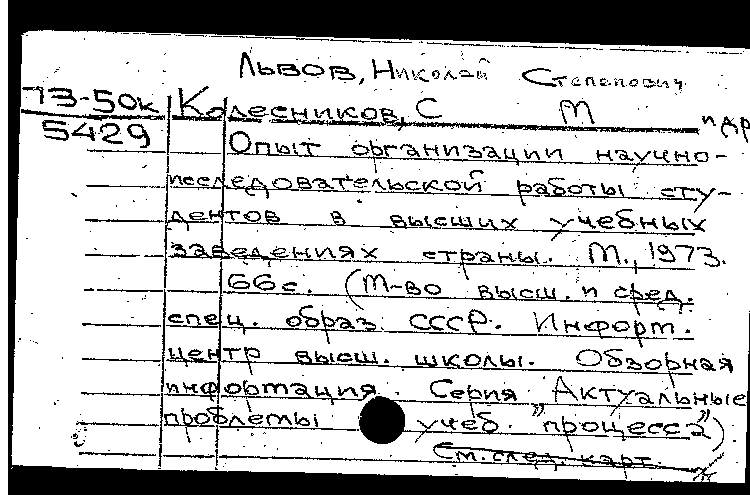 Львов, Николай Степанович
73-50к Колесников, С М и др
5429 Опыт организации научно-
исследовательской работы сту-
дентов в высших учебных
заведениях страны. М., 1973.
66 с. (М-во высш. и сред.
спец. образ. СССР. Информ.
центр высш. школы. Обзорная
информация. Серия "Актуальные
проблемы учеб. процесса")
См. след. карт.